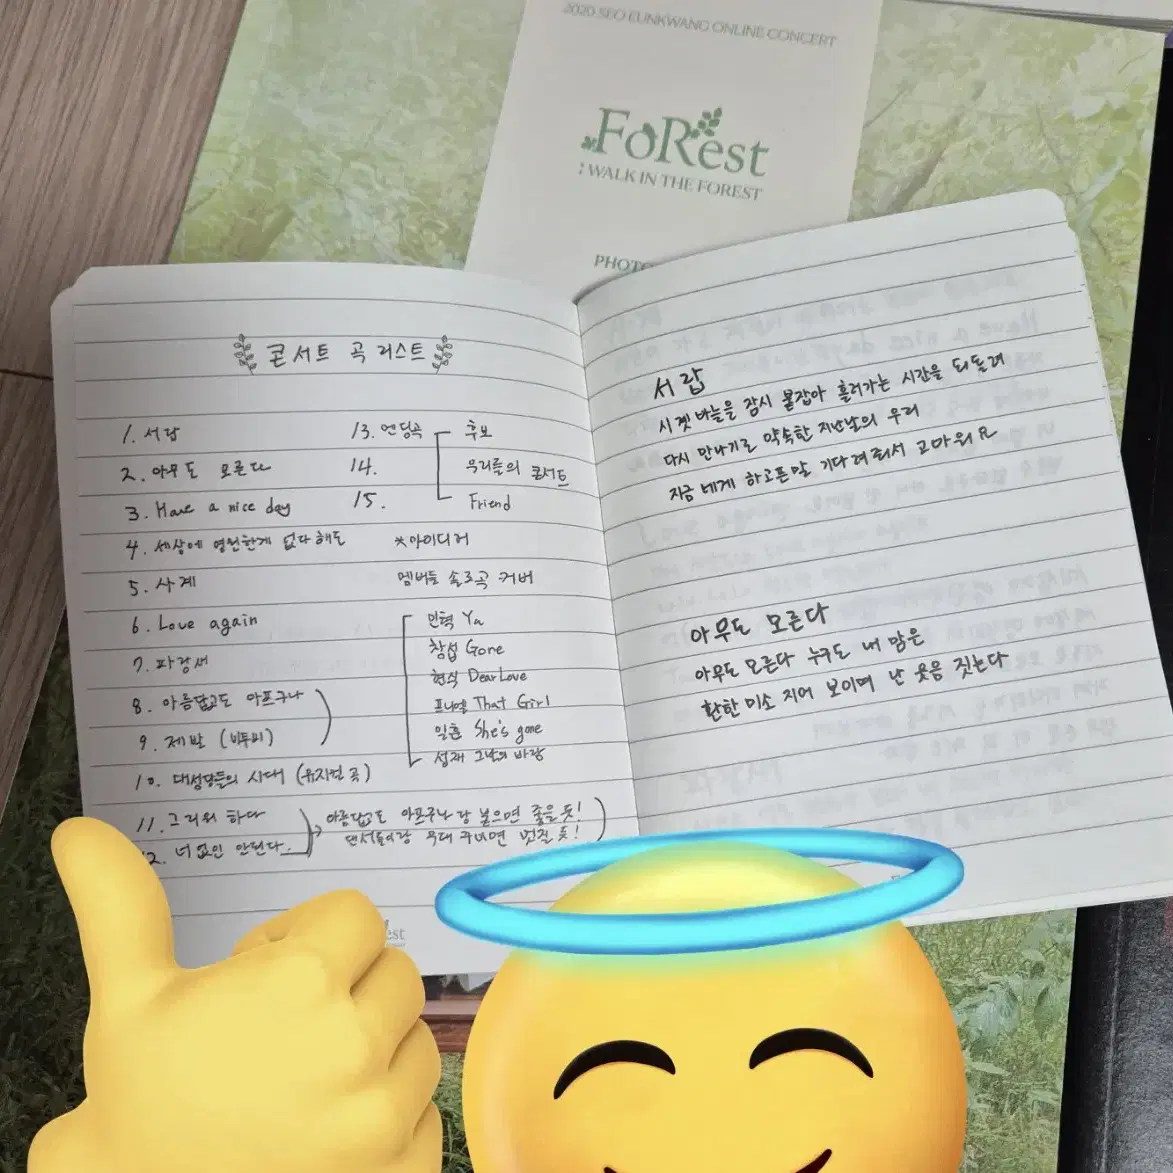 2020 SEO EUNKWANG ONLINE CONCERT
FoRest
: WALK IN THE FOREST
PHOTO
콘서트 곡 리스트
1. 서랍
2. 아무도 모른다
3. Have a nice day
4. 세상에 영원한게 없다해도
5. 사계
6. Love again
7. 파랑새
8. 아름답고도 아프구나
9. 제발 (비투비)
10. 대성당들의 시대 (뮤지컬 곡)
11. 그리워 하다
12. 너 없인 안된다.
아름답고도 아프구나랑 넣으면 좋을 듯!
댄서들이랑 무대 꾸미면 멋질 듯!
13. 엔딩곡
14.
15.
후보
우리들의 콘서트
Friend
*아이디어
멤버들 솔로곡 커버
민혁 Ya
창섭 Gone
현식 Dear Love
프니엘 That Girl
일훈 She's gone
성재 그날의 바람
서랍
시곗바늘을 잠시 붙잡아 흘러가는 시간을 되돌려
다시 만나기로 약속한 지난날의 우리
지금 네게 하고픈말 기다려줘서 고마워요
아무도 모른다
아무도 모른다 누구도 내 맘은
환한 미소 지어 보이며 난 웃음 짓는다
est